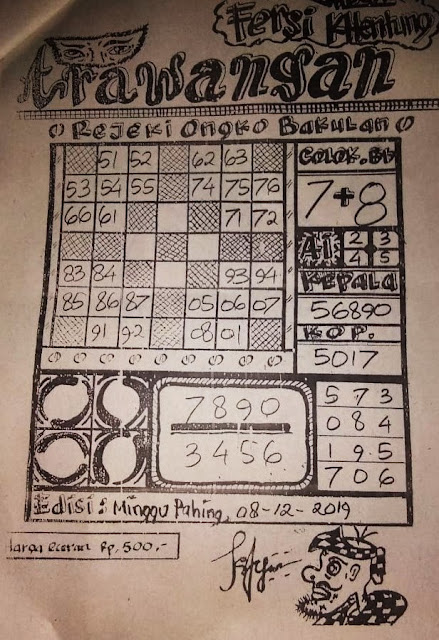 Fersi
trawangan
Rejeki Ongko Bakulan
51 52 62 63
53 54 55 74 75 76
66 61 71 72
83 84 93 94
85 86 87 05 06 07
91 92 08 01
COLOK. Bt
7+8
AI 2 3
4 5
KEPALA
56890
KOP.
5017
7890
3456
5 7 3
0 8 4
1 9 5
7 0 6
Edisi: Minggu Pahing, 08-12-2019
Harga Eceran Rp. 500,-